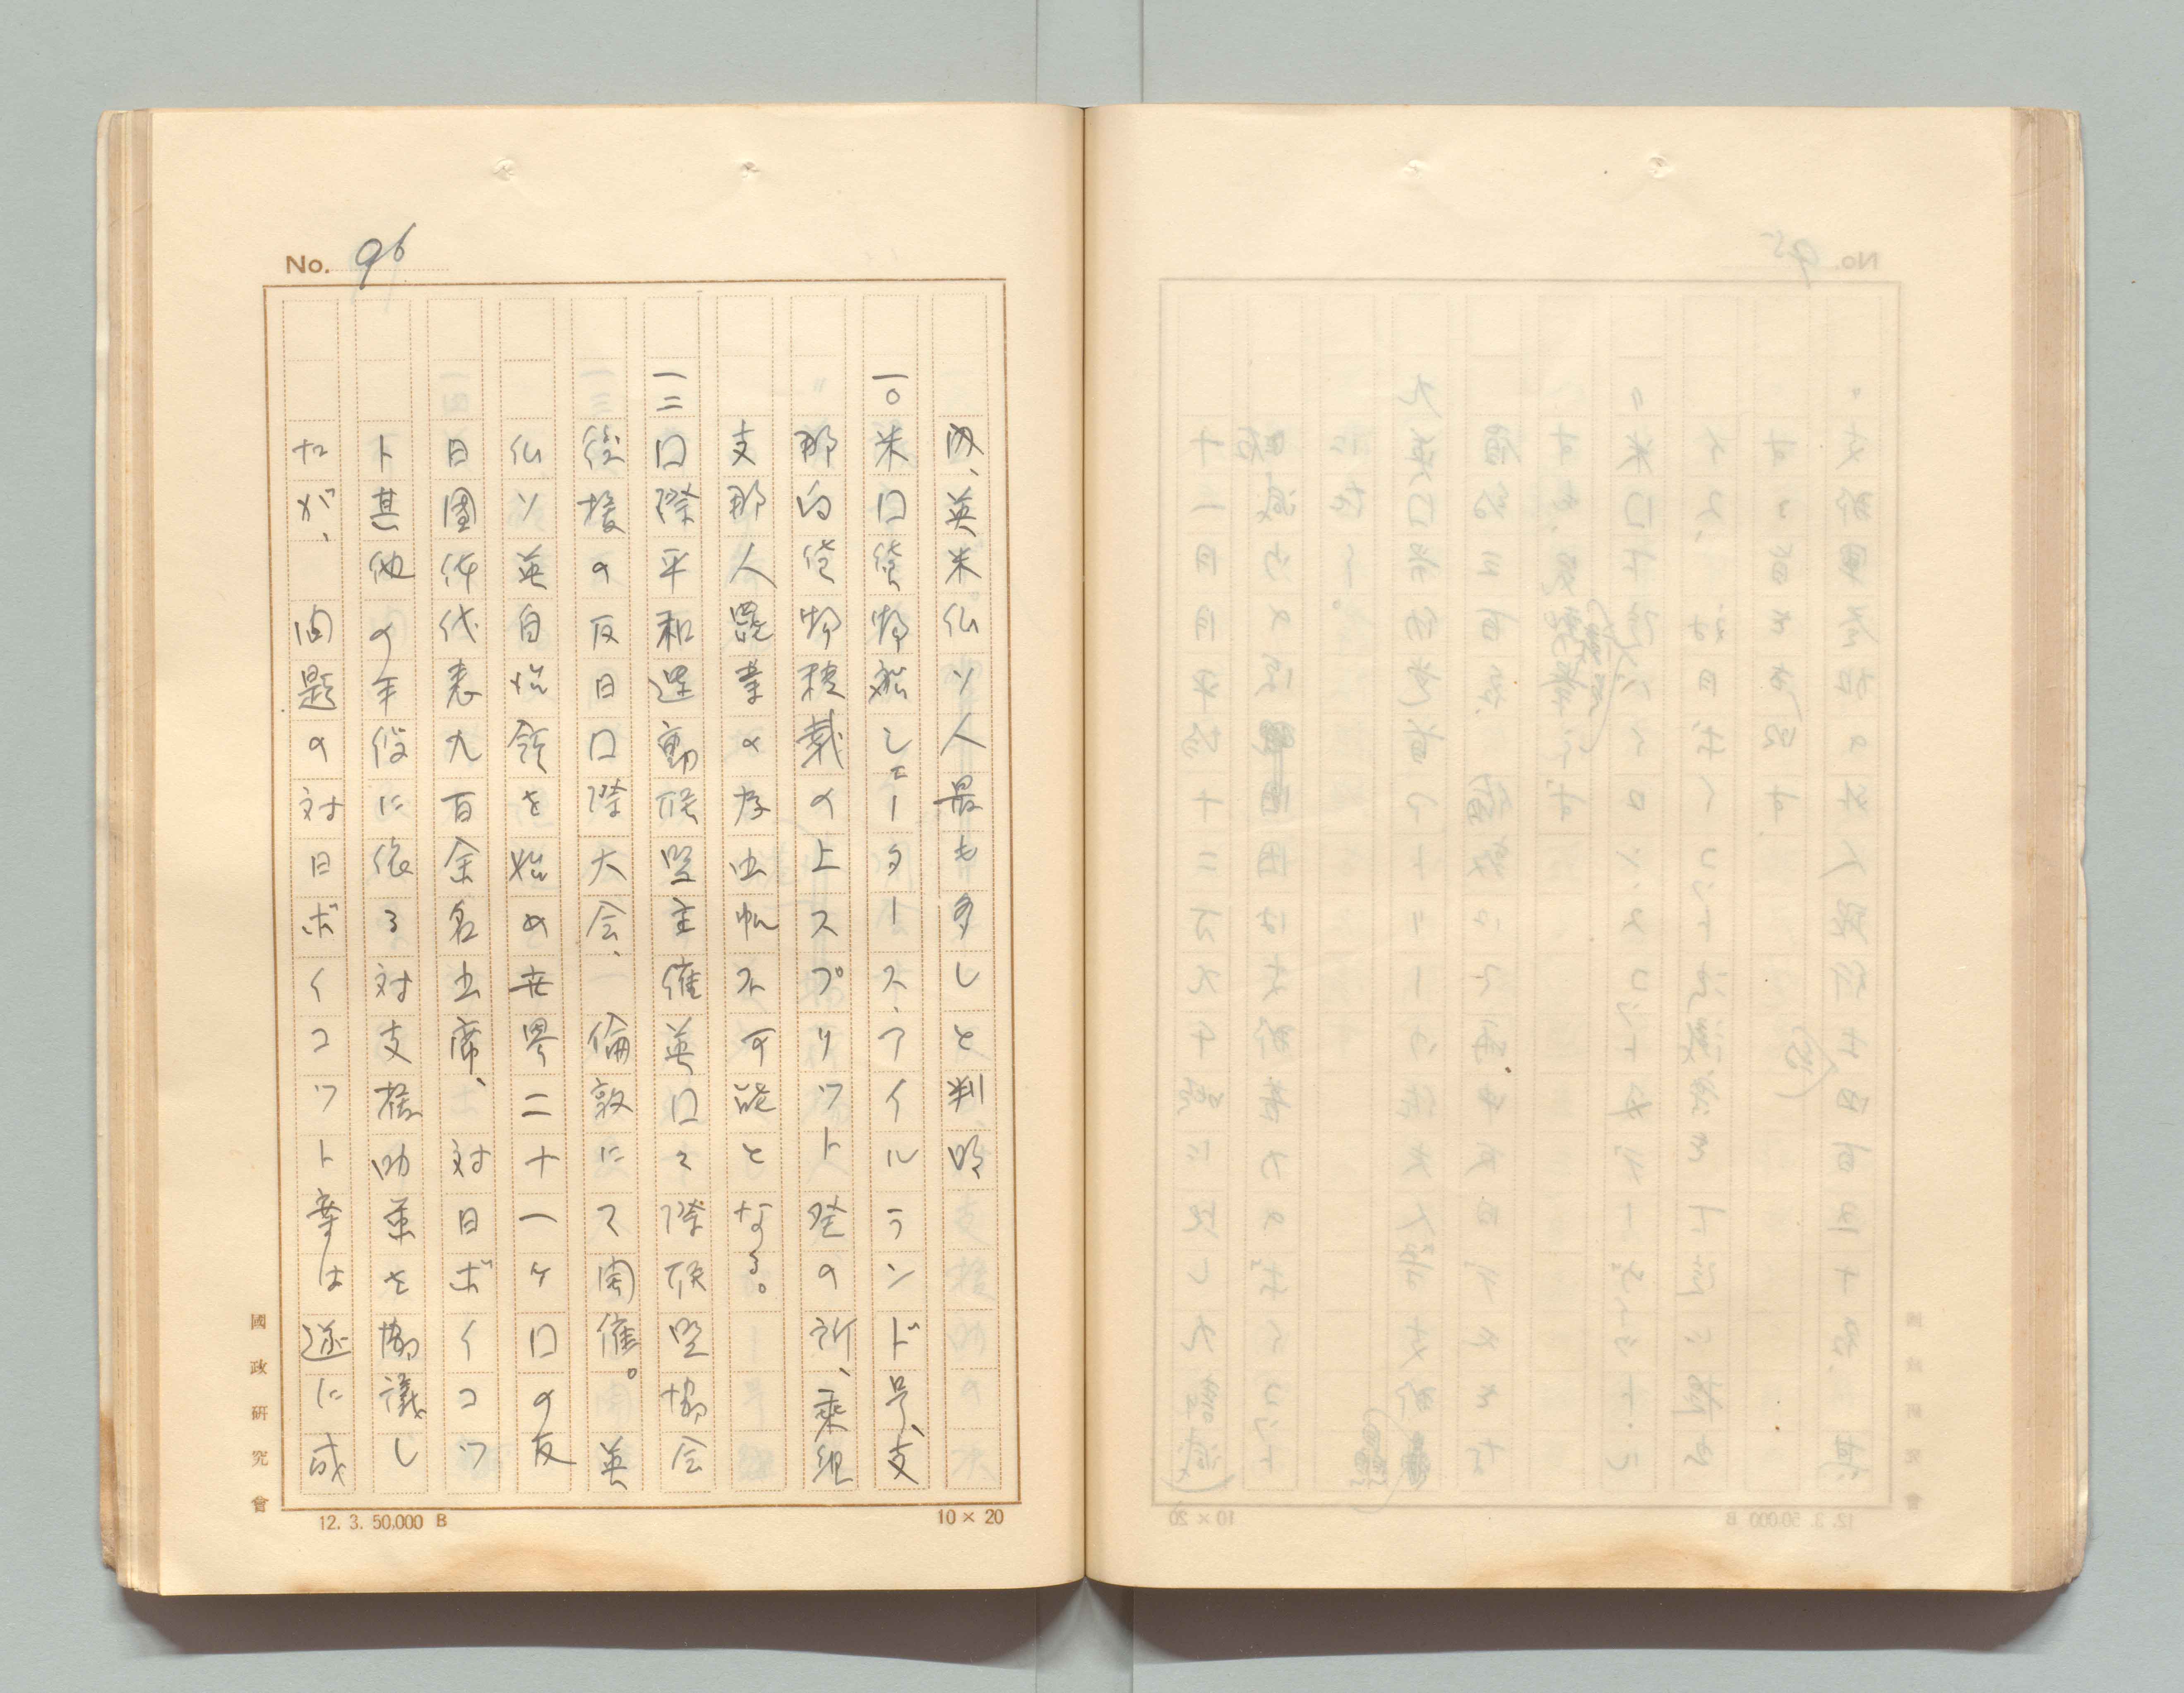 No. 96
内、英米仏ソ人最も多しと判明
一〇米口貨物船シエータース、アイルランド号、支
那向貨物積載の上スプリット発の所、乗組
支那人罷業の為出帆不可能となる。
一二口際平和運動联盟主催英口々際联盟協会
後援の反日口際大会、倫敦にて開催。英
仏ソ英自治領を始め世界二十一ケ口の反
日團体代表九百余名出席、対日ボイコツ
ト其他の手段に依る対支援助策を協議し
たが、問題の対日ボイコツト案は遂に成
國政研究會
12. 3. 50,000 B
10×20